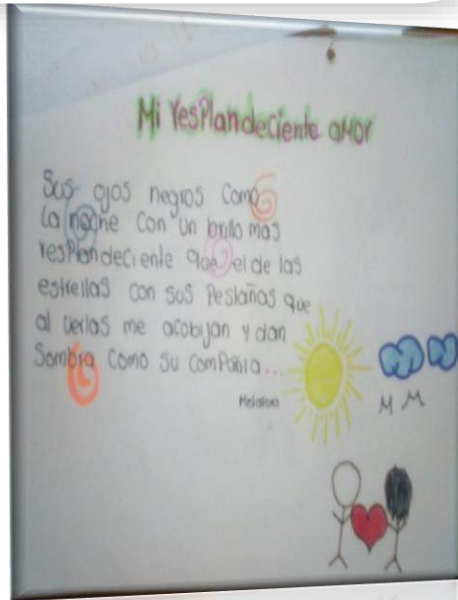 Mi resplandeciente amor
Sus ojos negros como
la noche con un brillo mas
resplandeciente que el de las
estrellas con sus pestañas que
al verlas me acobijan y dan
Sombra como su compañia...
Metafora